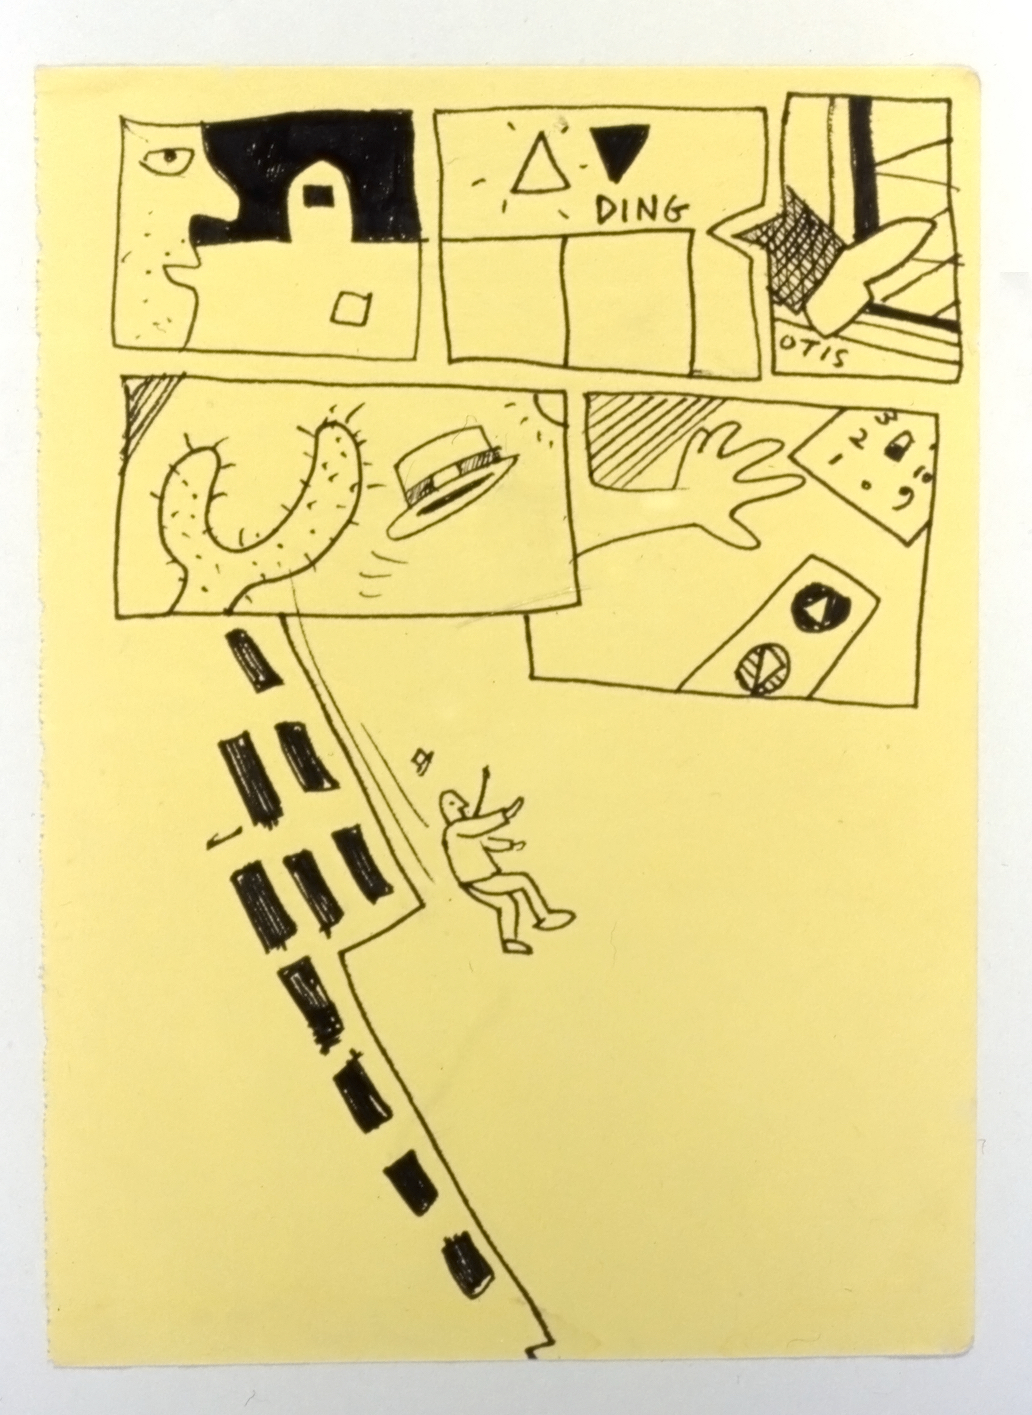 DING
OTIS
3
2
1
0
9
10